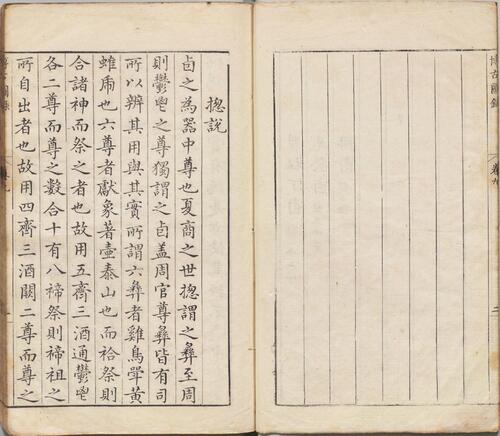 博古圖錄
卷九
二
捴說
卣之為器中尊也夏商之世捴謂之彝至周
則鬱鬯之尊獨謂之卣盖周官尊彝皆有司
所以辨其用與其實所謂六彝者雞鳥斝黄
蜼虎也六尊者獻象著壺泰山也而祫祭則
合諸神而祭之者也故用五齊三酒通鬱鬯
各二尊而尊之數合十有八禘祭則禘祖之
所自出者也故用四齊三酒闕二尊而尊之